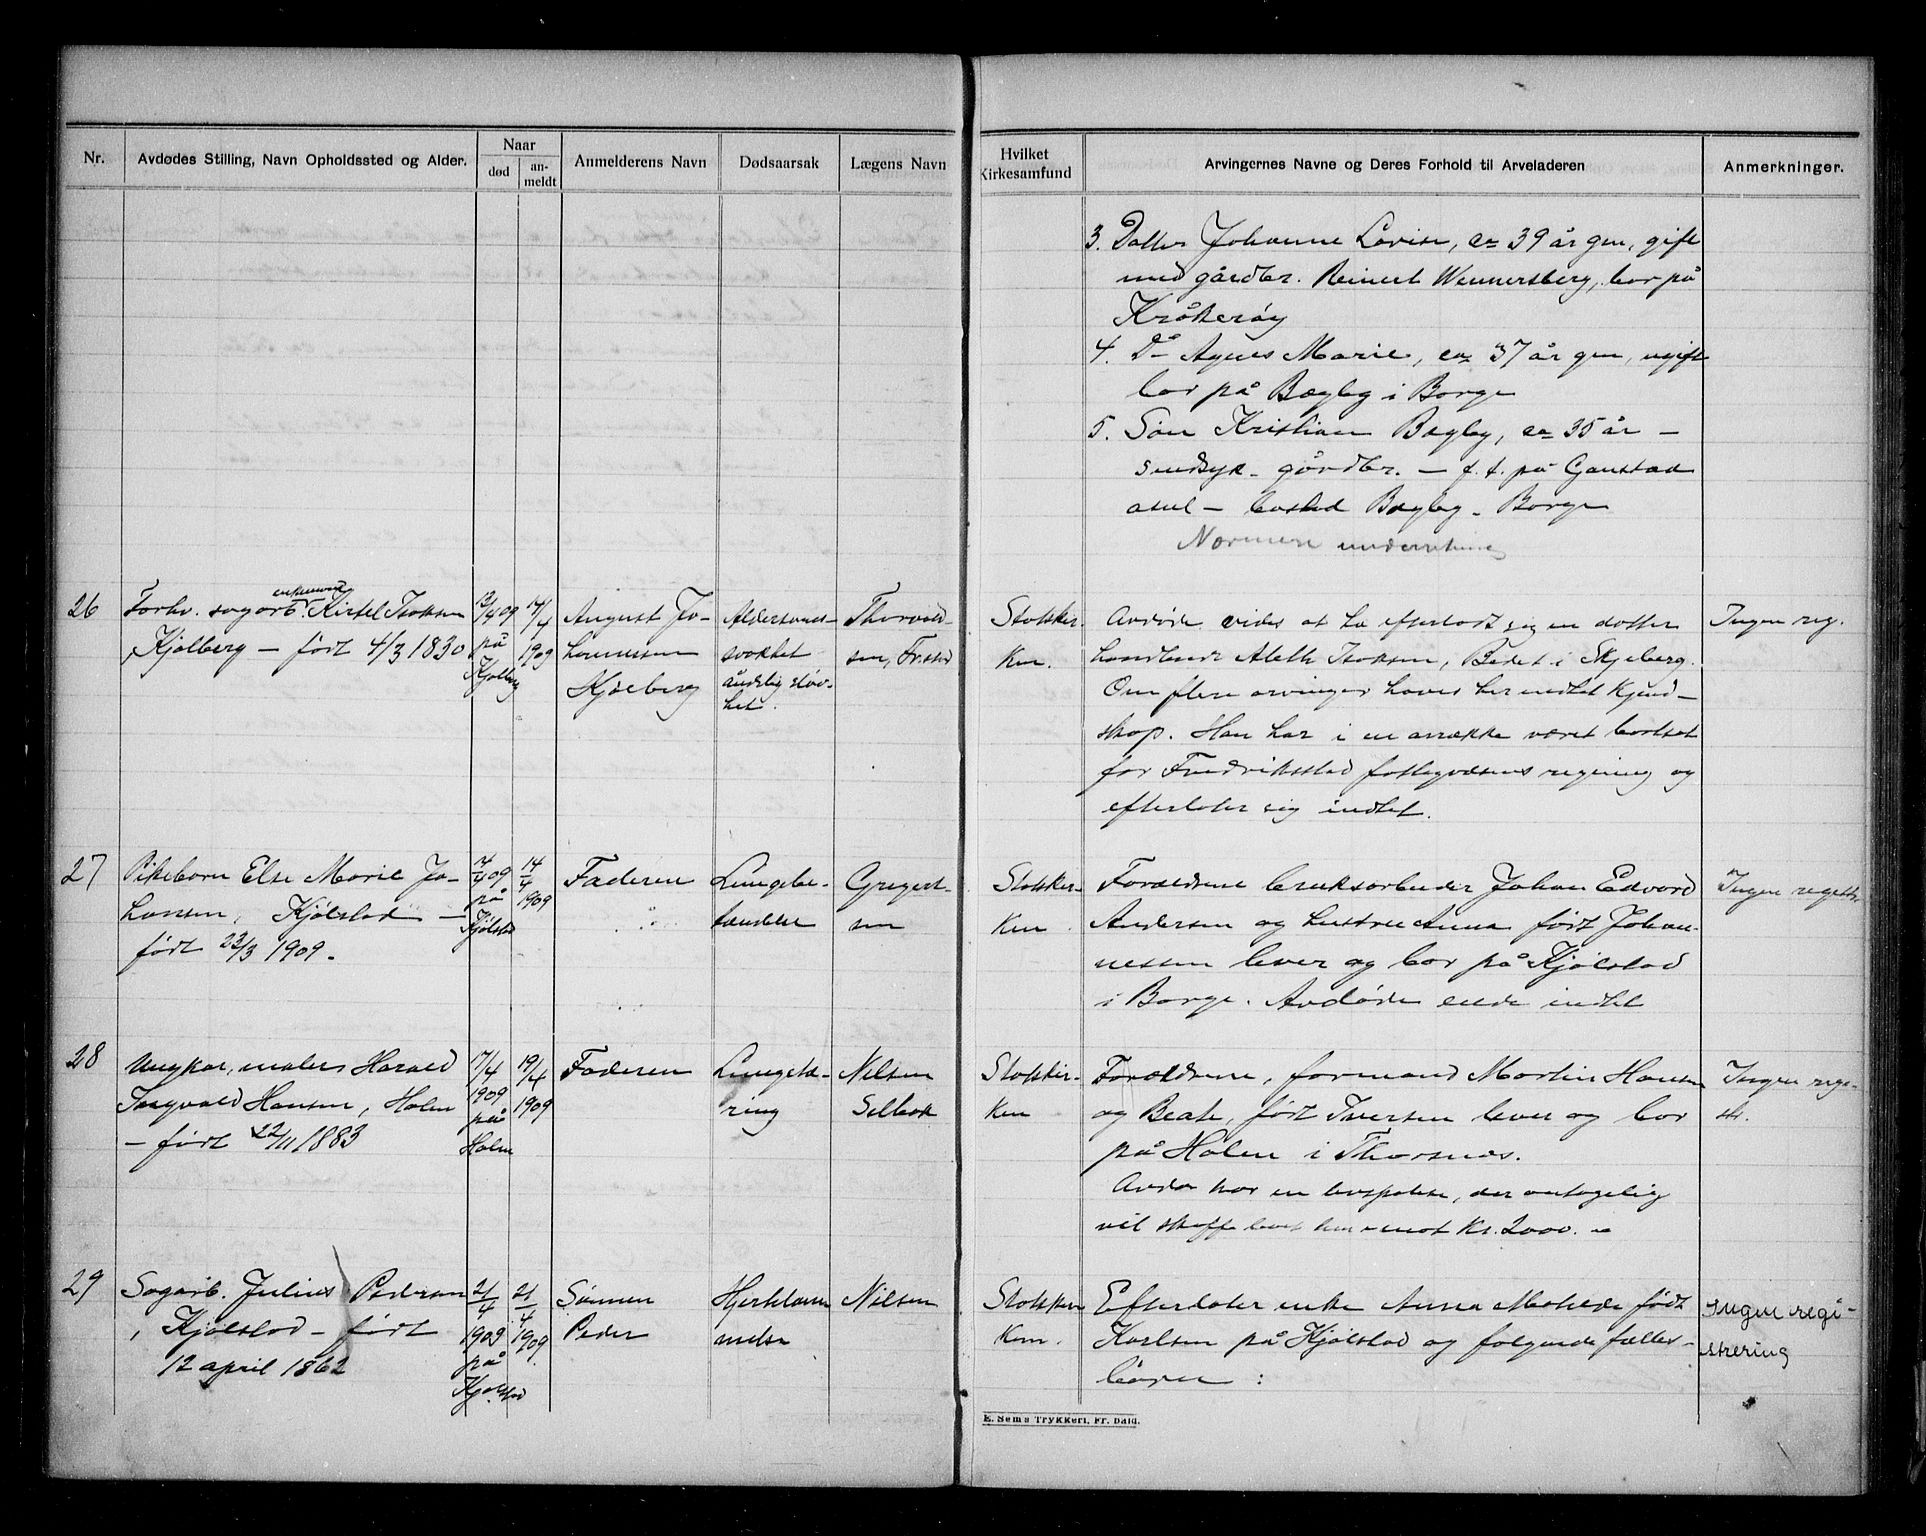 Nr.
Avdødes Stilling, Navn Opholdssted og Alder.
Naar
død
an-
meldt
Anmelderens Navn
Dødsaarsak
Lægens Navn
Hvilket
Kirkesamfund
Arvingernes Navne og Deres Forhold til Arveladeren
Anmerkninger.
3. Datter Johanne Lovise, ca 39 år gm, gift
med gårdbr. Reinert Wennersberg, bor på
Kråkerøy
4. Do Agnes Marie, ca 37 år gm, ugift
bor på Bægby i Borge
5. Søn Kristian Bægby, ca 35 år –
sindsyk – gårdbr. – f. t. på Gaustad
asyl – bosted Bægby – Borge
Nærmere underretning
26
Forhv. sagarb. enkemand Kirstel Isaksen
, Kjølberg – født 4/3 1830
13/4 09
på
Kjølberg
14/4
1909
August Jo-
hannessen
Kjølberg
Alderdoms-
svækket
åndelig sløv-
het.
Thorvald-
sen, Fr.stad
Statskir-
ken.
Avdøde vides at ha efterladt sig en datter
Aleth Isaksen, i Skjeberg.
Om flere arvinger haves her indtet kjend-
skap. Han har i en årrække været bortsat
for Fredriksstad fattigvæsens regning og
efterlater sig indtet.
Ingen reg.
27
Pikebarn Else Marie Jo-
hansen, Kjølstad –
født 23/3 1909.
7/4 09
på
Kjølstad
14/4
1909
Faderen
Lungebe-
tændelse
Gregert-
sen
Statskir-
ken
Forældrene bruksarbeider Johan Edvard
Andersen og hustru Anna født Johan-
nessen lever og bor på Kjølstad
i Borge. Avdøde eiede indtet
Ingen registr.
28
Ungkar, maler Harald
Ingvald Hansen, Holm
– født 22/11 1883
17/4
1909
på
Holm
19/4
1909
Faderen
Lungetæ-
ring
Nilsen
Selbak
Statskir-
ken
Forældrene, formand Martin Hansen
og Beate, født Iversen lever og bor
på Holm i Thorsnæs.
Avdøde har en livspolise, der antagelig
vil skaffe boet henimot Kr. 2000.–
Ingen regi-
str.
29
Sagarb. Julius Pedersen
, Kjølstad – født
12 april 1862
21/4
1909
på
Kjølstad
21/4
1909
Sønnen
Peder
Hjertelam-
melse
Nilsen
Statskir-
ken.
Efterlater enke Anna Matilde født
Karlsen på Kjølstad og følgende fælles-
børn :
Ingen regi-
strering
E. Sems Trykkeri, Fr. hald.